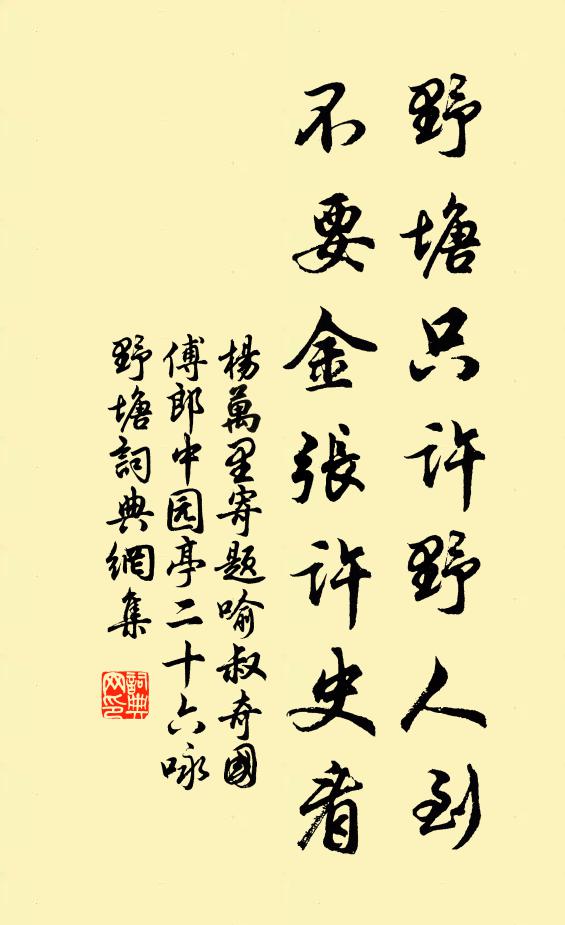 野塘只许野人到
不要金張许史看
楊萬里寄题喻叔奇國
傅郎中园亭二十六咏
野塘詞典網集
詞典
网印